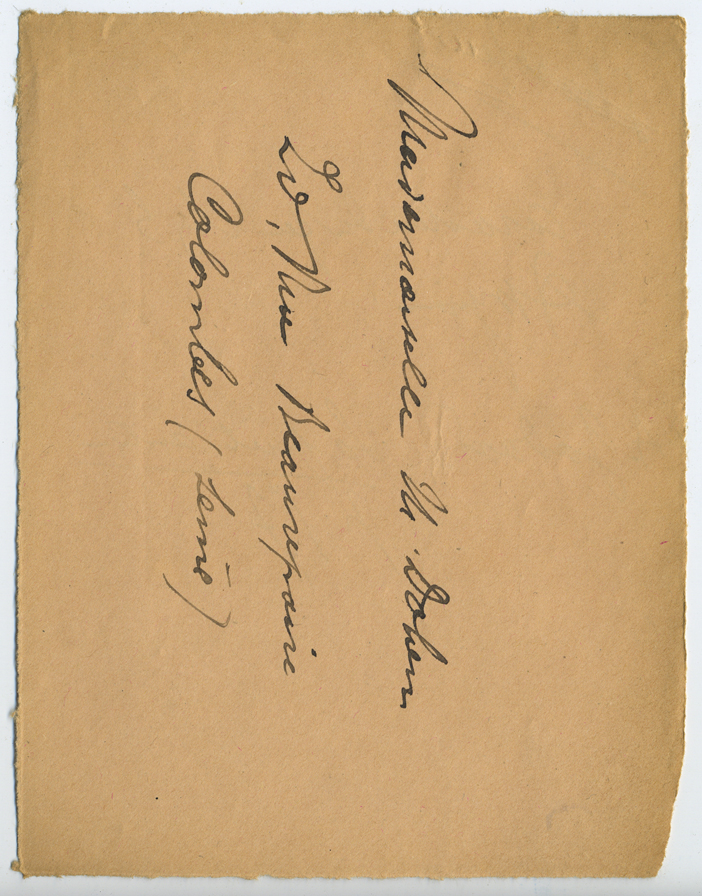 Mademoiselle M. Dohen
20, Rue Beaurepaire
Colombes (Seine)